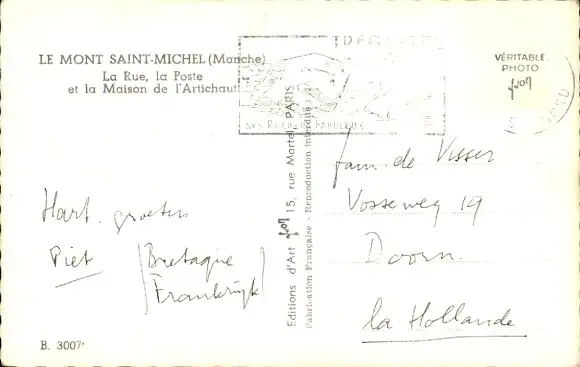 LE MONT SAINT-MICHEL (Manche)
La Rue, la Poste
et la Maison de l'Artichaut
VÉRITABLE
PHOTO
yvon
SES ROCHERS FABULEUX
Editions d'Art yvon 15, rue Martel, PARIS
Fabrication Française - Reproduction interdite
Hart. groeten
Piet
(Bretagne
Frankrijk)
fam. de Visser
Vosseweg 19
Doorn.
la Hollande
B. 3007